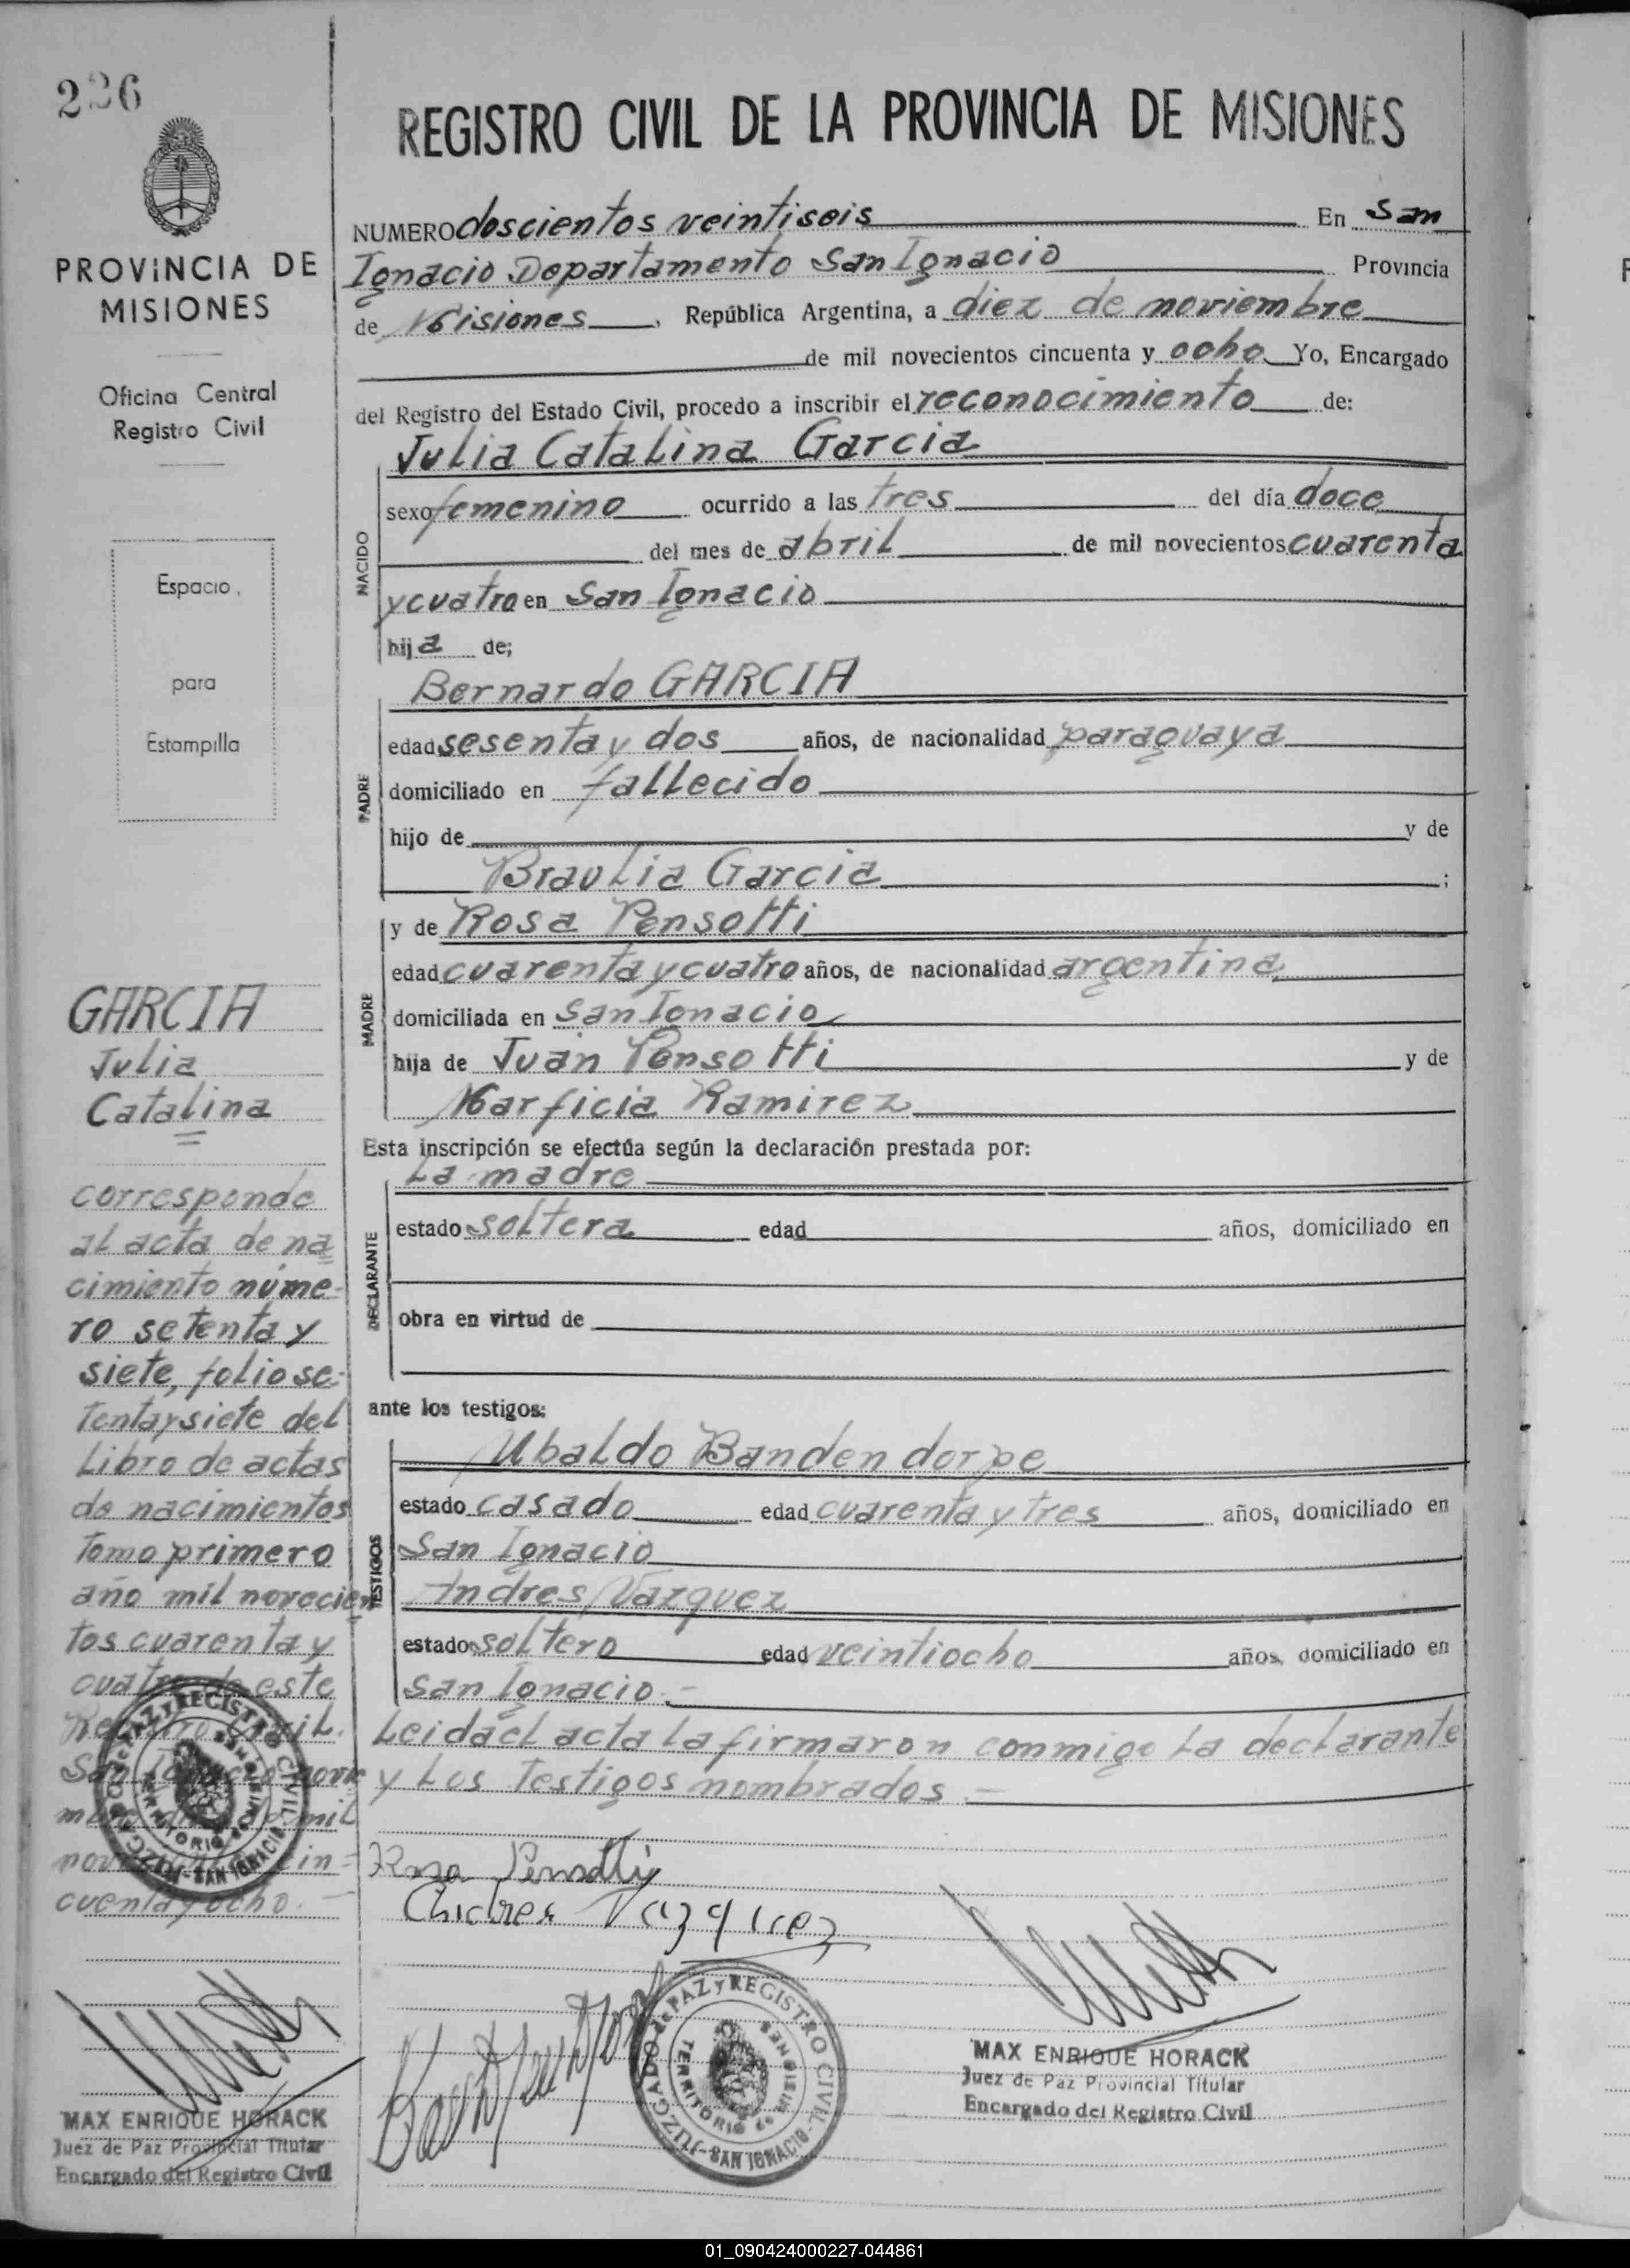 226
PROVINCIA DE
MISIONES
Oficina Central
Registro Civil
Espacio
para
Estampilla
GARCIA
Julia
Catalina
corresponde
al acta de na
cimiento núme-
ro setenta y
siete, folio se-
tenta y siete del
Libro de actas
de nacimientos
tomo primero
año mil novecien
tos cuarenta y
cuatro de este
Registro Civil.
San Ignacio novie
mil
cin-
cuenta y ocho.-
MAX ENRIQUE HORACK
Juez de Paz Provincial Titular
Encargado del Registro Civil
REGISTRO CIVIL DE LA PROVINCIA DE MISIONES
NUMERO doscientos veintiseis En San
Ignacio Departamento San Ignacio Provincia
de Misiones, República Argentina, a diez de noviembre
de mil novecientos cincuenta y ocho Yo, Encargado
del Registro del Estado Civil, procedo a inscribir el reconocimiento de:
Julia Catalina Garcia
NACIDO
sexo femenino ocurrido a las tres del día doce
del mes de abril de mil novecientos cuarenta
y cuatro en San Ignacio
hija de;
Bernardo GARCIA
PADRE
edad sesenta y dos años, de nacionalidad paraguaya
domiciliado en fallecido
hijo de y de
Braulia Garcia ;
MADRE
y de Rosa Pensotti
edad cuarenta y cuatro años, de nacionalidad argentina
domiciliada en San Ignacio
hija de Juan Pensotti y de
Marficia Ramirez
Esta inscripción se efectúa según la declaración prestada por:
La madre
DECLARANTE
estado soltera edad años, domiciliado en
obra en virtud de
ante los testigos:
Ubaldo Bandendorpe
TESTIGOS
estado casado edad cuarenta y tres años, domiciliado en
San Ignacio
Andres Vazquez
estado soltero edad veintiocho años, domiciliado en
San Ignacio.-
Leida el acta la firmaron conmigo la declarante
y los testigos nombrados.-
Rosa Pensotti
Andres Vazquez
JUZGADO de PAZ y REGISTRO CIVIL - SAN IGNACIO -
TERRITORIO de MISIONES
MAX ENRIQUE HORACK
Juez de Paz Provincial Titular
Encargado del Registro Civil
01_090424000227-044861